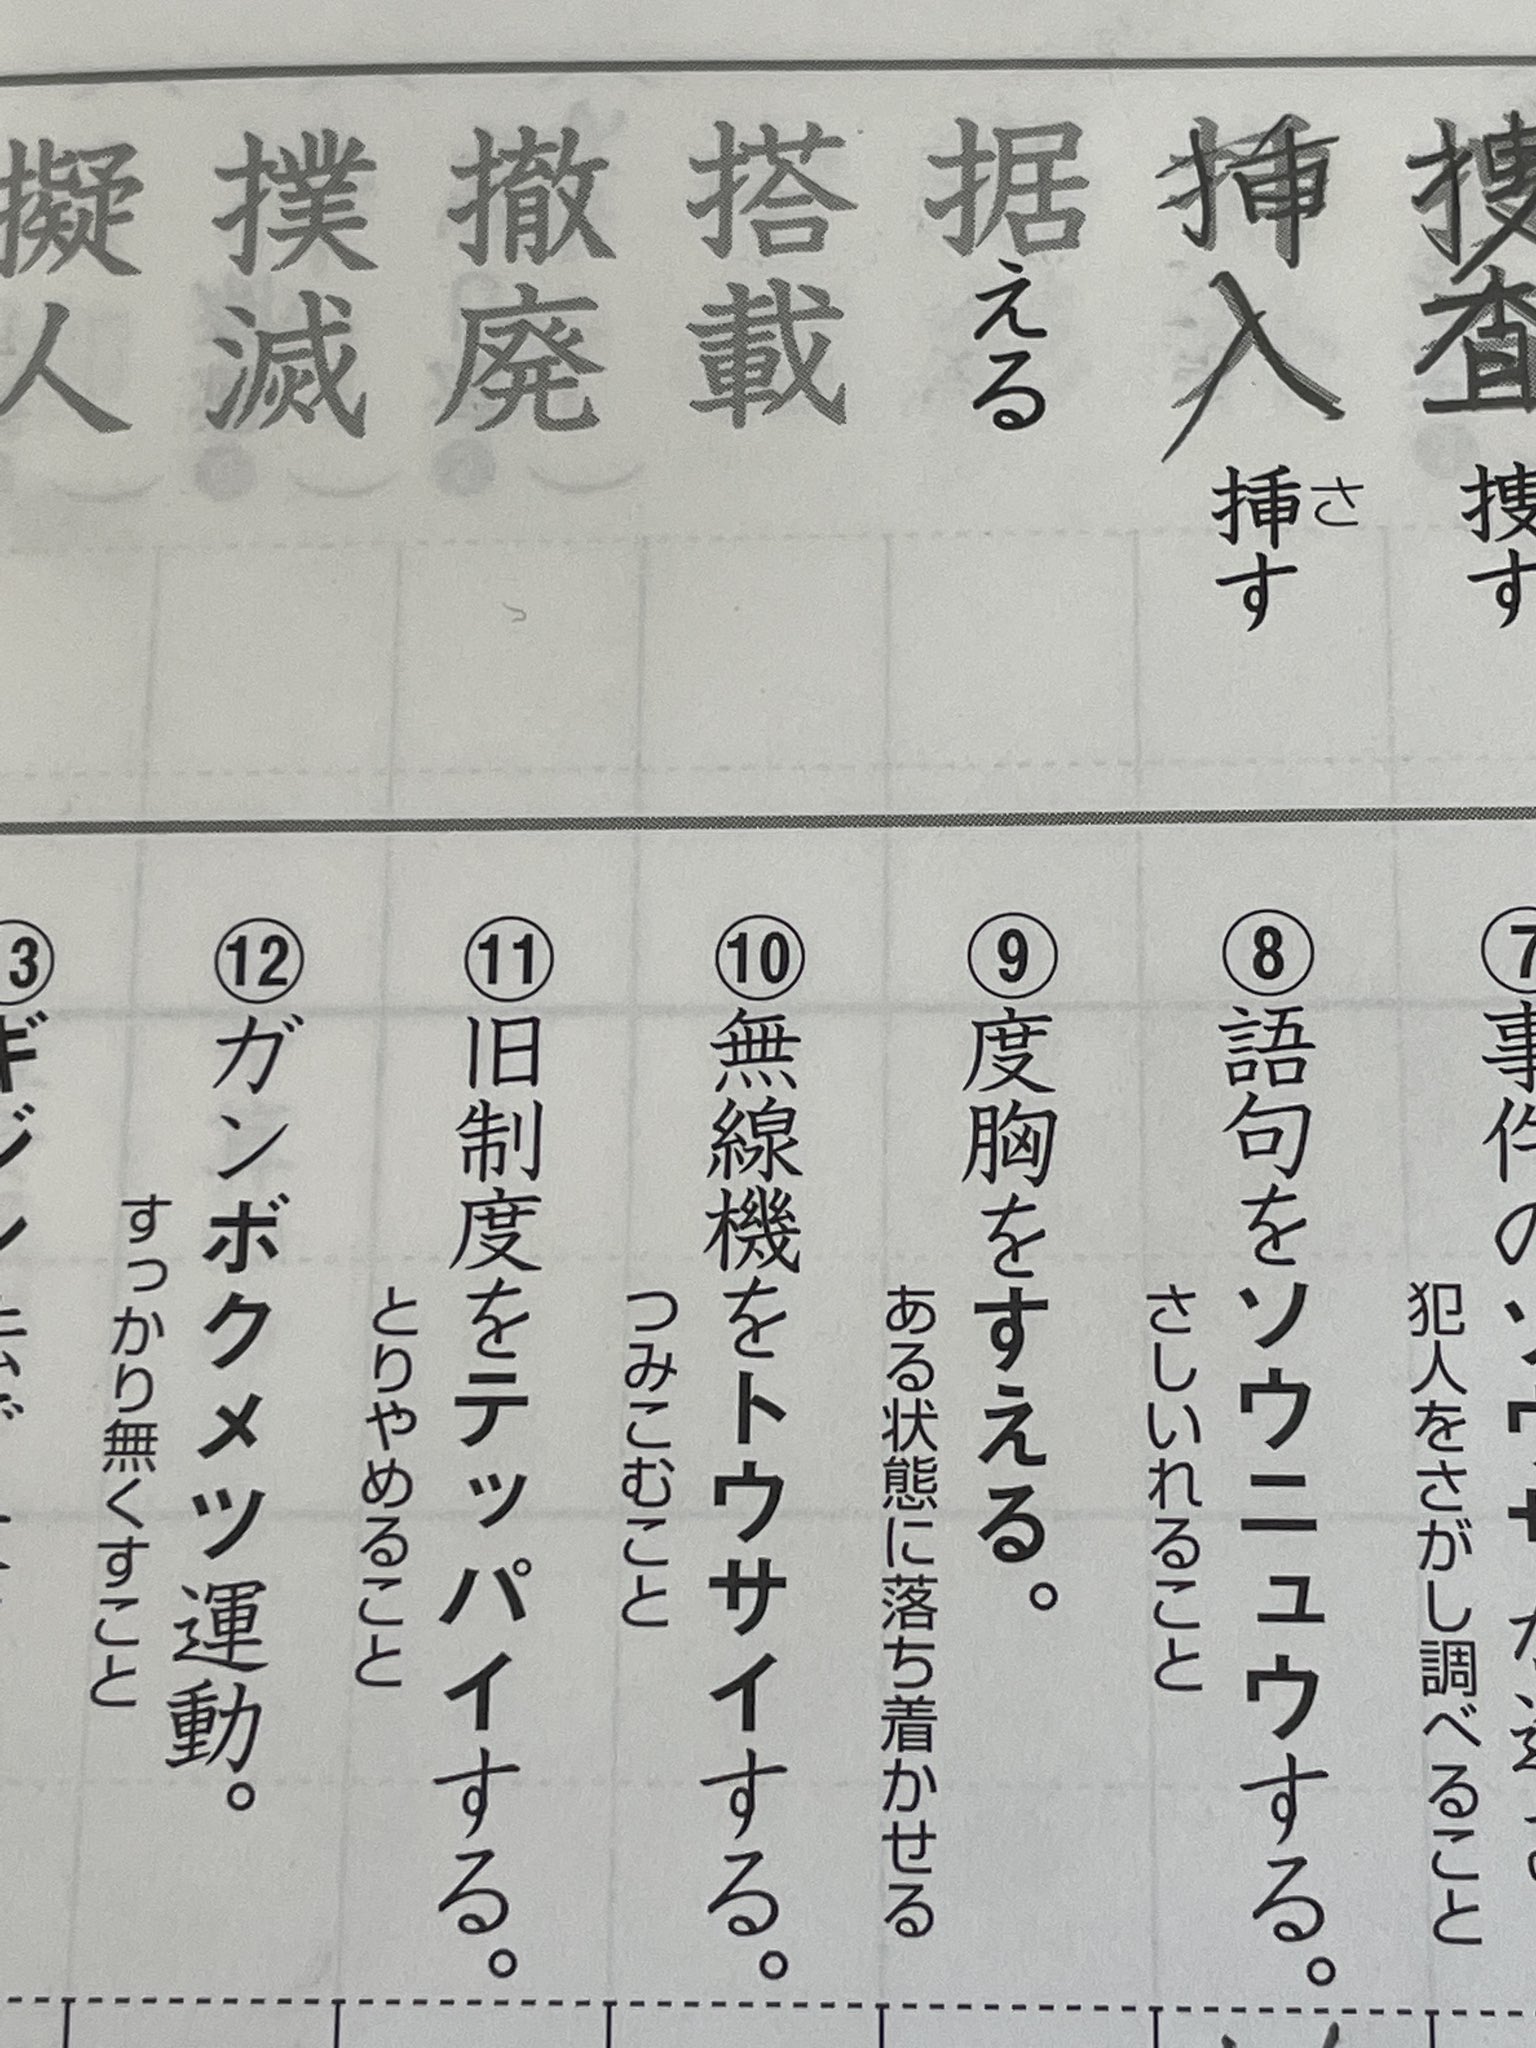 捜査
捜す
挿入
挿す
さ
据える
搭載
撤廃
撲滅
擬人
⑦事件の
犯人をさがし調べること
⑧語句をソウニュウする。
さしいれること
⑨度胸をすえる。
ある状態に落ち着かせる
⑩無線機をトウサイする。
つみこむこと
⑪旧制度をテッパイする。
とりやめること
⑫ガンボクメツ運動。
すっかり無くすこと